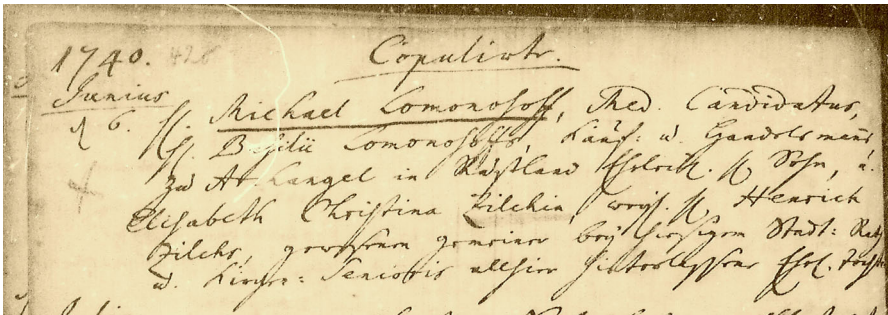 1740. Copulirte.
Junius
d 6. H. Michael Lomonosoff, Med. Candidatus,
H. Basilii Lomonosoffs, Kauf- u. Handelsmanns,
zu Archangel in Rußland Ehrlich. H. Sohn, u.
Elisabeth Christina Zilchin, weyl. H. Henrich
Zilchs, gewesenen gemeiner bey hiesigem Stadt: Rath
u. Kirchen-Senioris allhier hinterlassene Ehel.